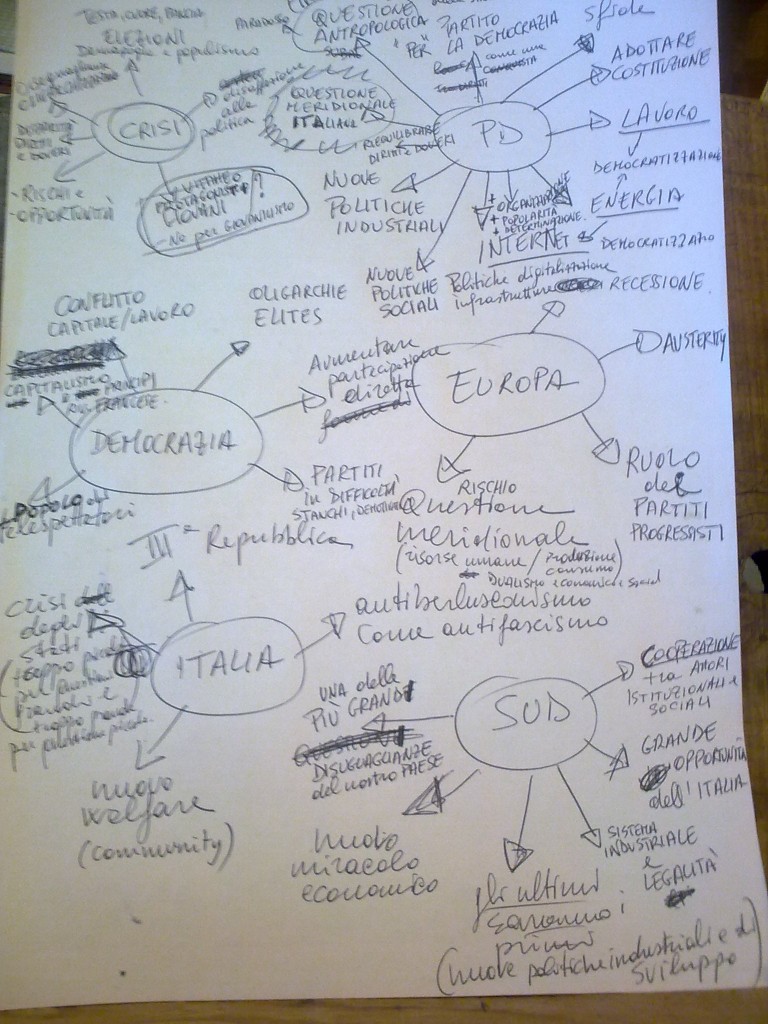 TESTA, CUORE, PANCIA
ELEZIONI
Demagogia e populismo
CRISI
disaffezione
alla
politica
DIRITTI
E DOVERI
- RISCHI e
- OPPORTUNITÀ
PROTAGONISTI
GIOVANI
?
- No per GIOVANILISMO
PARADOSSO
QUESTIONE
ANTROPOLOGICA
QUESTIONE
MERIDIONALE
ITALIANA
PARTITO
"PER" LA DEMOCRAZIA
come una
sfide
ADOTTARE
COSTITUZIONE
PD
RIEQUILIBRARE
DIRITTI e DOVERI
LAVORO
DEMOCRATIZZAZIONE
ENERGIA
DEMOCRATIZZAZIO
NUOVE
POLITICHE
INDUSTRIALI
+ ORGANIZZAZIONE
+ POPOLARITÀ
+ DETERMINAZIONE
INTERNET
Politiche digitalizzazione
infrastrutture
NUOVE
POLITICHE
SOCIALI
CONFLITTO
CAPITALE/LAVORO
OLIGARCHIE
ELITES
CAPITALISMO
e PRINCIPI
RIV. FRANCESE.
DEMOCRAZIA
Aumentare
partecipazione
diretta
PARTITI
in DIFFICOLTÀ
STANCHI, DEMOTIVATI
+ POPOLO di
telespettatori
RECESSIONE
AUSTERITY
EUROPA
RUOLO
dei
PARTITI
PROGRESSISTI
RISCHIO
Questione
meridionale
(risorse umane / produzione
consumo)
DUALISMO economico e social
IIIª Repubblica
crisi
degli
Stati
(troppo piccoli
per questioni
grandi e
troppo grandi
per politiche piccole.
ITALIA
antiberlusconismo
Come antifascismo
nuovo
welfare
(community)
SUD
UNA delle
PIÙ GRANDI
DISUGUAGLIANZE
del nostro PAESE
COOPERAZIONE
tra ATTORI
ISTITUZIONALI e
SOCIALI
GRANDE
OPPORTUNITÀ
dell'ITALIA
SISTEMA
INDUSTRIALE
e
LEGALITÀ
nuovo
miracolo
economico
gli ultimi
saranno i
primi
(nuove politiche industriali e di
sviluppo)